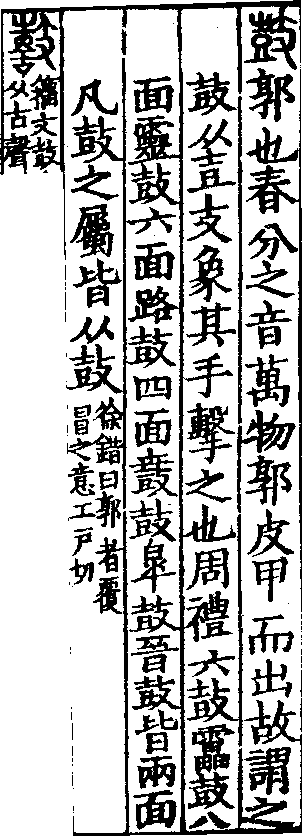 鼓郭也春分之音萬物郭皮甲而出故謂之
鼓从壴支象其手擊之也周禮六鼓靁鼓八
面靈鼓六面路鼓四面鼖鼓皋鼓晉鼓皆兩面
凡鼓之屬皆从鼓
徐鍇曰郭者覆
冒之意工戶切
籒文鼓
从古聲